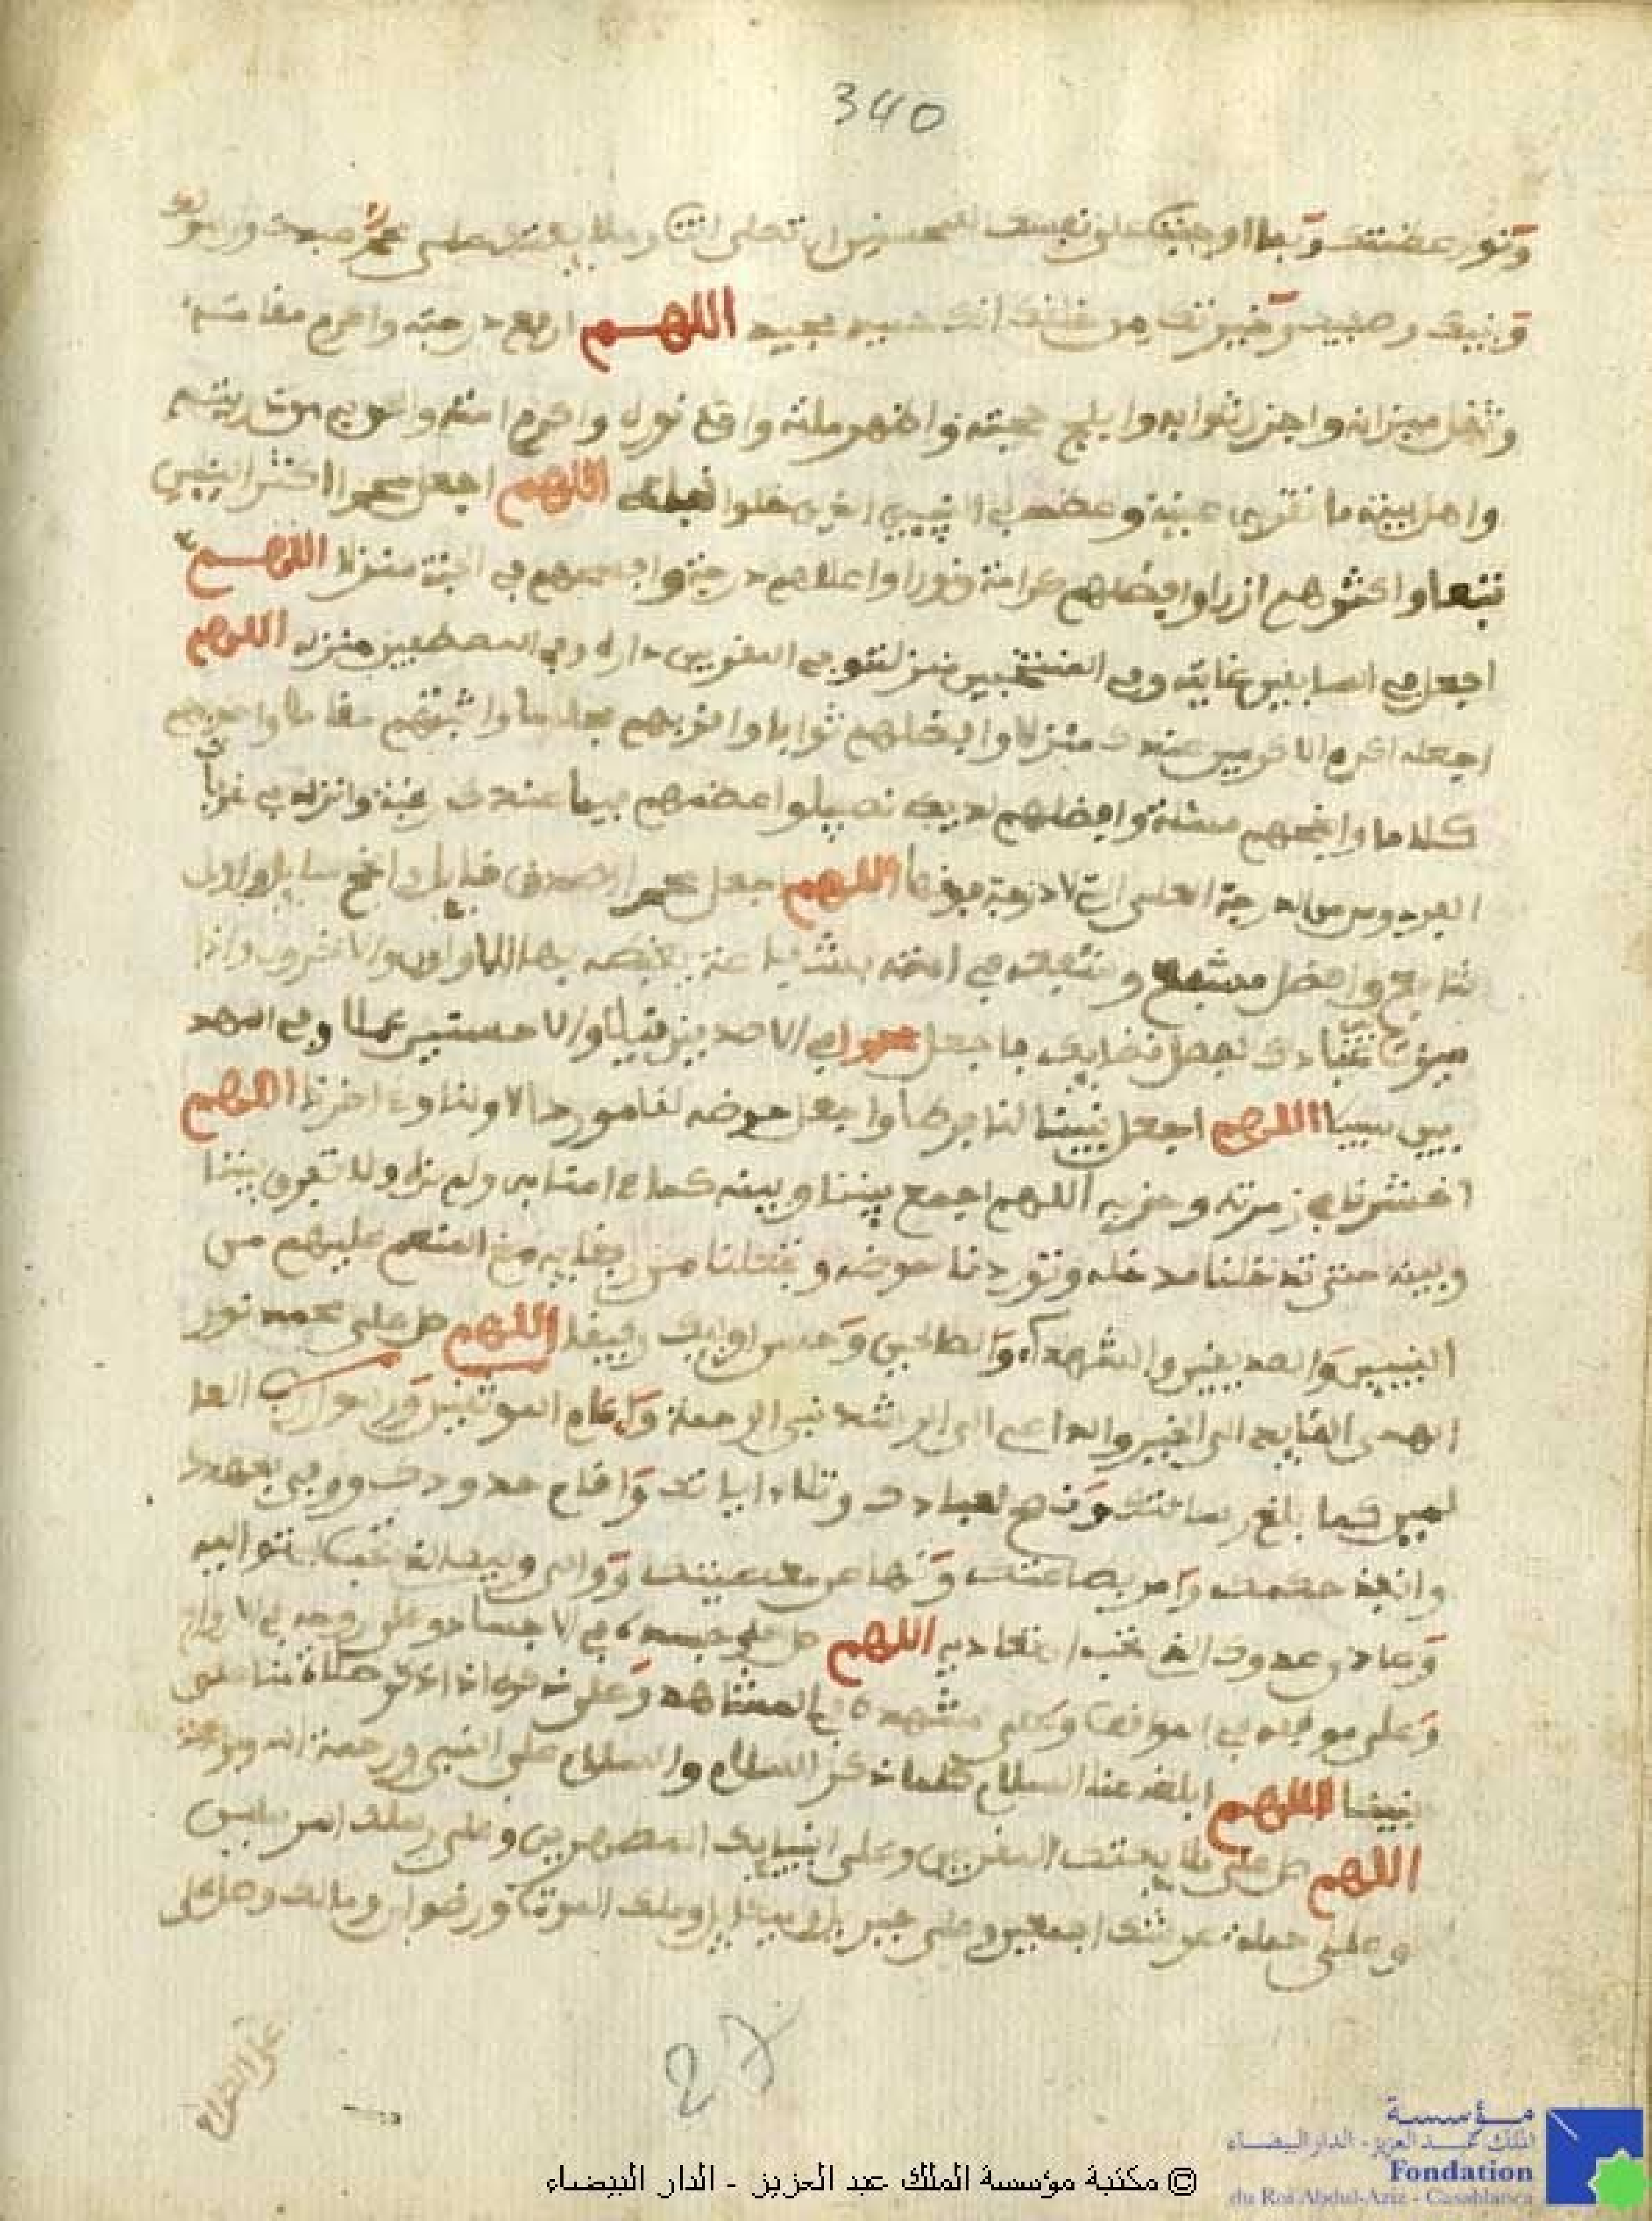 340
ونور عظمتك وبما اوجبت على نفسك للمحسنين ان تصلي انت وملايكتك على محمد عبدك ورسولك
ونبيك وصفيك وخيرتك من خلقك انك حميد مجيد اللهم ارفع درجته واكرم مقامه
وثقل ميزانه واجزل ثوابه وابلج حجته واظهر ملته واضء نوره وادم كرامته من ذريته
واهل بيته ما تقر به عينه وعظمه في النبيين الذين خلوا قبله اللهم اجعل محمدا اكثر النبيين
تبعا واكثرهم ازرا وافضلهم كرامة ونورا واعلاهم درجة وافسحهم في الجنة منزلا اللهم
اجعل في السابقين غايته وفي المنتخبين منزلته وفي المقربين داره وفي المصطفين منزله اللهم
اجعله اكرم الاكرمين عندك منزلا وافضلهم ثوابا واقربهم مجلسا واثبتهم مقاما واصوبهم
كلاما وانجحهم مسئلة وافضلهم لديك نصيبا واعظمهم فيما عندك رغبة وانزله في غرفات
الفردوس من الدرجة العلى التي لا درجة فوقها اللهم اجعل محمدا اصدق قايل وانجح سايل واول
شافع وافضل مشفع وشفعه في امته بشفاعة يغبطه بها الاولون والاخرون واذا
ميزت عبادك لفصل قضايك فاجعل محمدا في الاصدقين قيلا والاحسنين عملا وفي المهد
يين سبيلا اللهم اجعل نبينا لنا فرطا واجعل حوضه لنا موردا لاولنا وءاخرنا اللهم
احشرنا في زمرته وحزبه اللهم اجمع بيننا وبينه كما ءامنا به ولم نره ولا تفرق بيننا
وبينه حتى تدخلنا مدخله وتوردنا حوضه وتجعلنا من رفقايه مع المنعم عليهم من
النبيين والصديقين والشهداء والصالحين وحسن اوليك رفيقا اللهم صل على محمد نور
الهدى القايد الى الخير والداعي الى الرشد نبي الرحمة وامام المتقين ورسول رب العا
لمين كما بلغ رسالتك ونصح لعبادك وتلا ءاياتك واقام حدودك ووفى بعهدك
وانفذ حكمك وامر بطاعتك ونهى عن معصيتك ووالى وليك الذي تحب ان تواليه
وعادى عدوك الذي تحب ان تعاديه اللهم صل على جسده في الاجساد وعلى روحه في الارواح
وعلى موقفه في المواقف وعلى مشهده في المشاهد وعلى ذكره اذا ذكر صلاة منا على
نبينا اللهم ابلغه عنا السلام كلما ذكر السلام والسلام على النبي ورحمة الله وبركته
اللهم صل على ملايكتك المقربين وعلى انبيايك المطهرين وعلى رسلك المرسلين
وعلى حملة عرشك اجمعين وعلى جبريل وميكاييل وملك الموت ورضوان ومالك وصل على
على الكرام
27
© مكتبة مؤسسة الملك عبد العزيز - الدار البيضاء
مؤسسة
الملك عبد العزيز - الدار البيضاء
Fondation
du Roi Abdul-Aziz - Casablanca